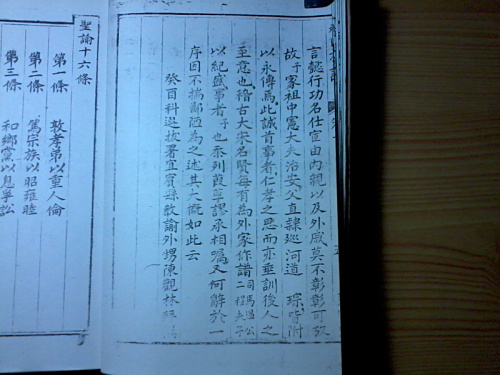 言懿行功名仕宦由內親以及外戚莫不彰彰可孜
故 家祖中憲大夫治安公直隸巡河道 琮皆附
以永傳焉此誠首事者仁孝之思而亦垂訓後人之
至意也稽古大宋名賢每有為外家作譜 司馬溫公 二程夫子
以紀盛事者予也忝列葭莩謬承相囑又何辭於一
序因不揣鄙陋為之述其大概如此云
癸酉科選拔署宜賓縣教諭外甥陳觀林
聖諭十六條
第一條 敦孝弟以重人倫
第二條 篤宗族以昭雍睦
第三條 和鄉黨以息爭訟